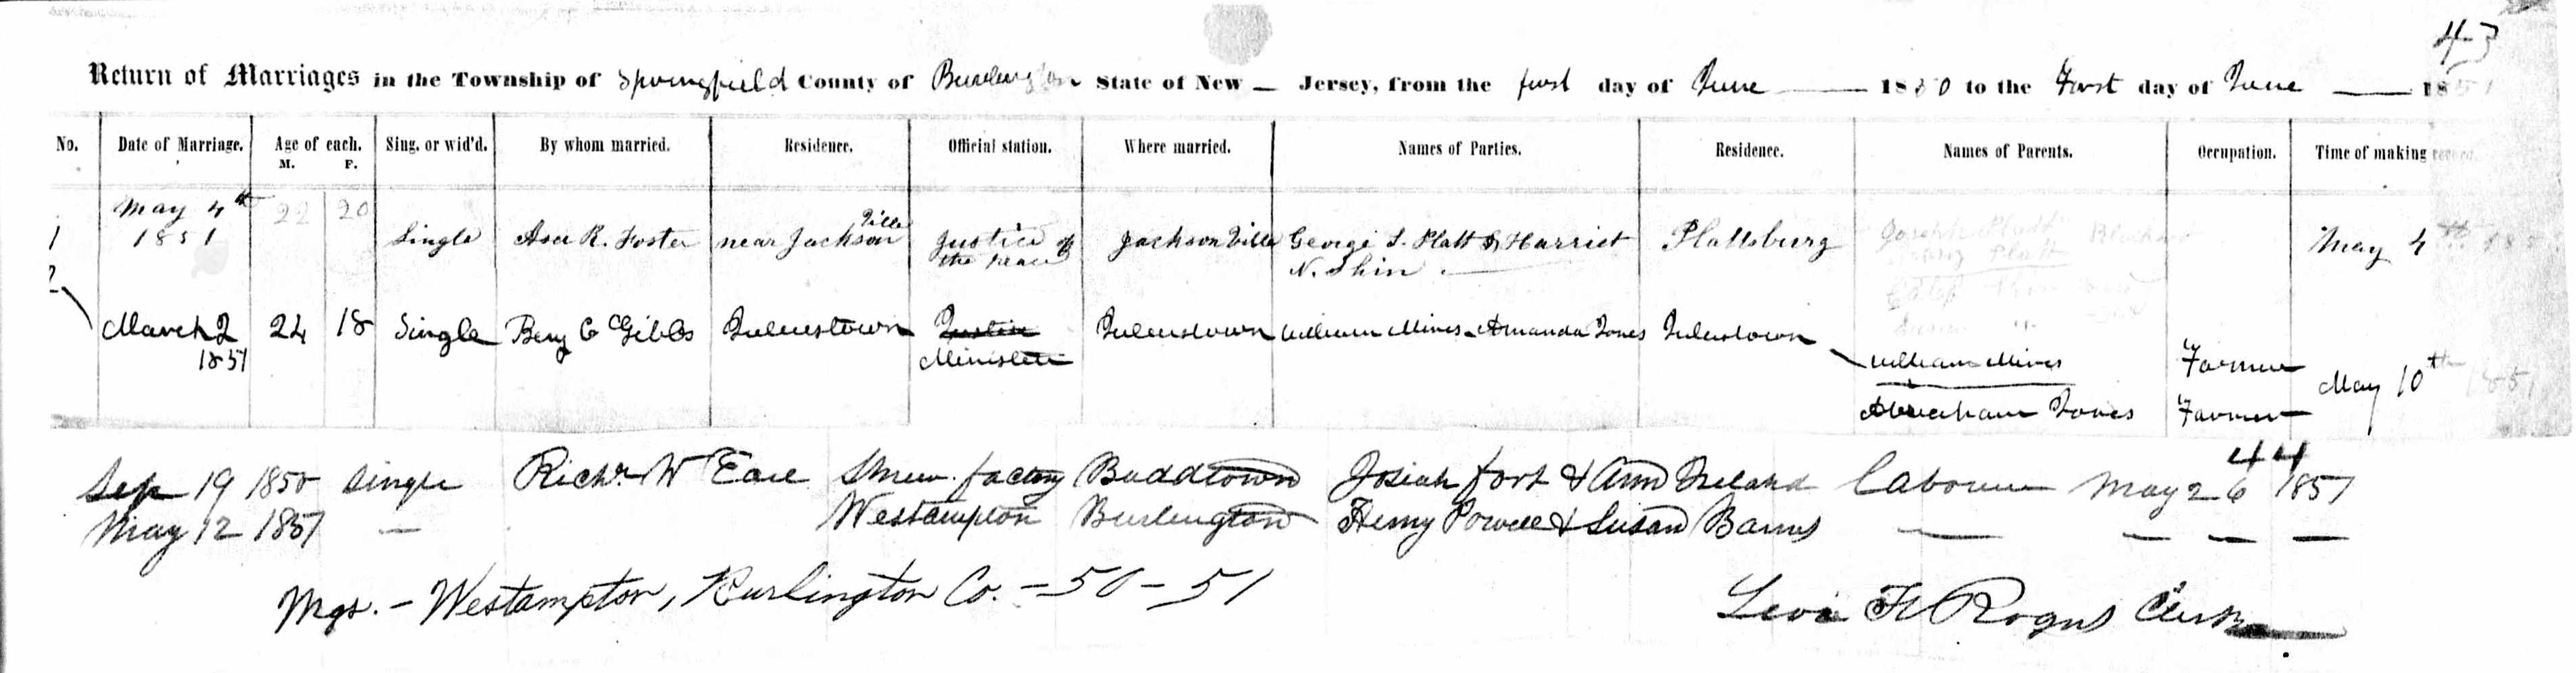 43
Return of Marriages in the Township of Springfield County of Burlington State of New — Jersey, from the first day of June — 1850 to the First day of June — 1851
No. Date of Marriage. Age of each. Sing. or wid'd. By whom married. Residence. Official station. Where married. Names of Parties. Residence. Names of Parents. Occupation. Time of making record.
M. F.
1 May 4th 1851 22 20 Single Asa R. Foster near Jackson Ville Justice of the peace Jackson Ville George S. Platt & Harriet N. Shin Plattsburg Joseph Platt May 4th
2 March 2 1851 24 18 Single Benj C Gibbs Juliustown Justice Minister Juliustown William Mires Amanda Jones Juliustown William Mires Farmer May 10th 1851
Abraham Jones Farmer
44
Sep 19 1850 Single Richr W Earl Shrew. factory Buddtown Josiah fort & Ann Ireland Labourer May 26 1851
May 12 1851 — Westampton Burlington Henry Powell & Susan Barns — — — —
Mgs. - Westampton, Burlington Co. - 50 - 51
Levi Rogers Clerk